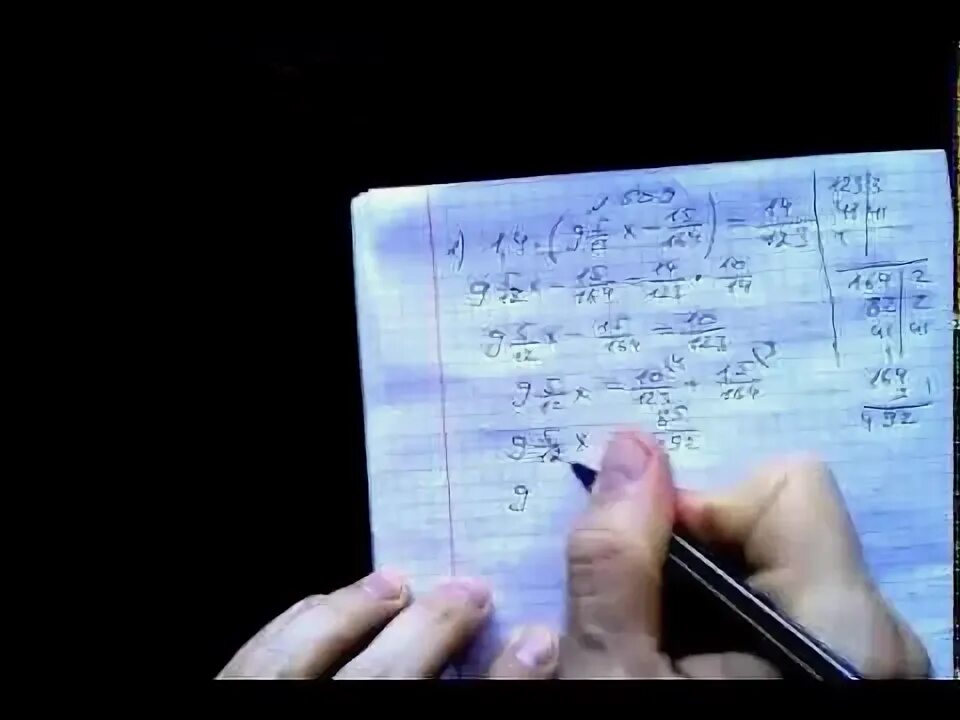 1,4 · (9 5/12 x − 15/164) = 14/123
9 5/12 x − 15/164 = 14/123 · 10/14
9 5/12 x − 15/164 = 10/123
9 5/12 x = 10/123 + 15/164
9 5/12 x
9
123|3
41|41
164|2
82|2
41|41
1
164
3
492